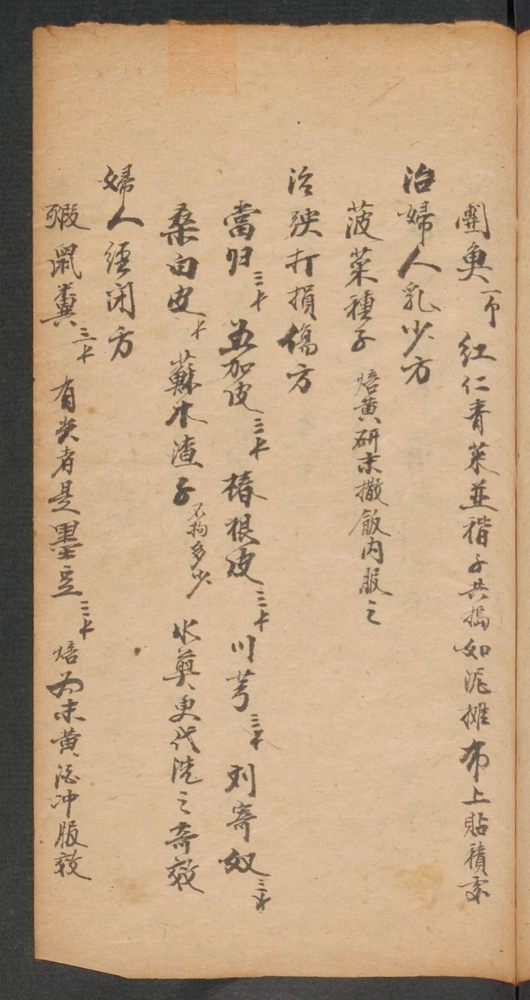 魚一个 紅仁青菜並楷子共搗如泥攤布上貼積處
治婦人乳少方
菠菜種子 焙黄研末撒飯內服之
治殃打損傷方
當归三十 五加皮三十 椿根皮三十 川芎三十 刘寄奴三十
桑白皮十 蘇木渣子不拘多少 水煎更代洗之奇效
婦人經闭方
鼠糞三十 有尖者是墨豆三十 焙为末黄酒冲服效